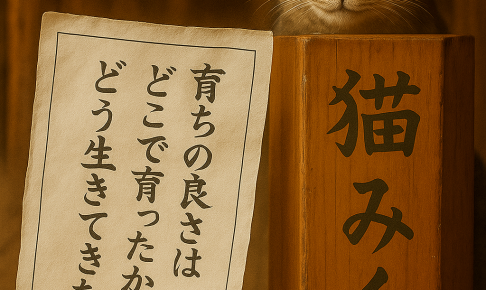 猫みく
育ちの良さは
どこで育ったか
どう生きてき